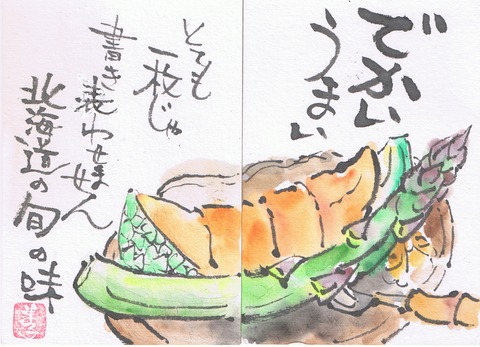 でかい
うまい
とても
一枚じゃ
書き表わせません
北海道の旬の味